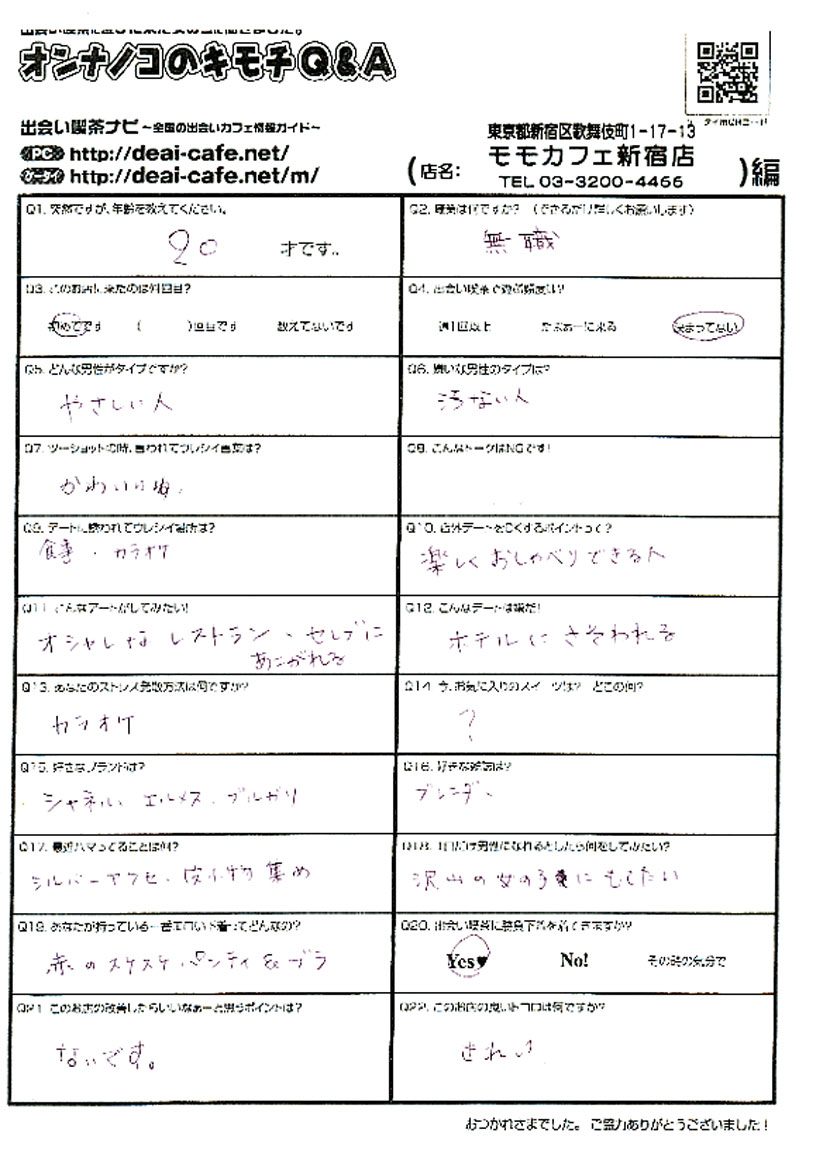 オンナノコのキモチQ&A
出会い喫茶ナビ～全国の出会いカフェ情報ガイド～
PC http://deai-cafe.net/
ケータイ http://deai-cafe.net/m/
東京都新宿区歌舞伎町1-17-13
(店名: モモカフェ新宿店 )編
TEL 03-3200-4466
Q1. 突然ですが、年齢を教えてください。
20 才です。
Q2. 職業は何ですか? (できるだけ詳しくお願いします)
無職
Q3. このお店に来たのは何回目?
初めてです ( )回目です 教えてないです
Q4. 出会い喫茶で遊ぶ頻度は?
週1回以上 たまぁーに来る 決まってない
Q5. どんな男性がタイプですか?
やさしい人
Q6. 嫌いな男性のタイプは?
汚ない人
Q7. ツーショットの時、言われてウレシイ言葉は?
かわいいね。
Q8. こんなトークはNGです!
Q9. デートに誘われてウレシイ場所は?
食事・カラオケ
Q10. 店外デートをOKするポイントって?
楽しくおしゃべりできる人
Q11. こんなデートがしてみたい!
オシャレなレストラン、セレブに
あこがれる
Q12. こんなデートは嫌だ!
ホテルにさそわれる
Q13. あなたのストレス発散方法は何ですか?
カラオケ
Q14. 今、お気に入りのスイーツは? どこの何?
?
Q15. 好きなブランドは?
シャネル、エルメス、ブルガリ
Q16. 好きな雑誌は?
ブレンダ、
Q17. 最近ハマってることは何?
シルバーアクセ・皮小物集め
Q18. 1日だけ男性になれるとしたら何をしてみたい?
沢山の女の子達にもてたい
Q19. あなたが持っている一番エロい下着ってどんなの?
赤のスケスケパンティ&ブラ
Q20. 出会い喫茶に勝負下着を着てきますか?
Yes♥ No! その時の気分で
Q21. このお店の改善したらいいなぁーと思うポイントは?
ないです。
Q22. このお店の良いトコロは何ですか?
きれい
おつかれさまでした。ご協力ありがとうございました!